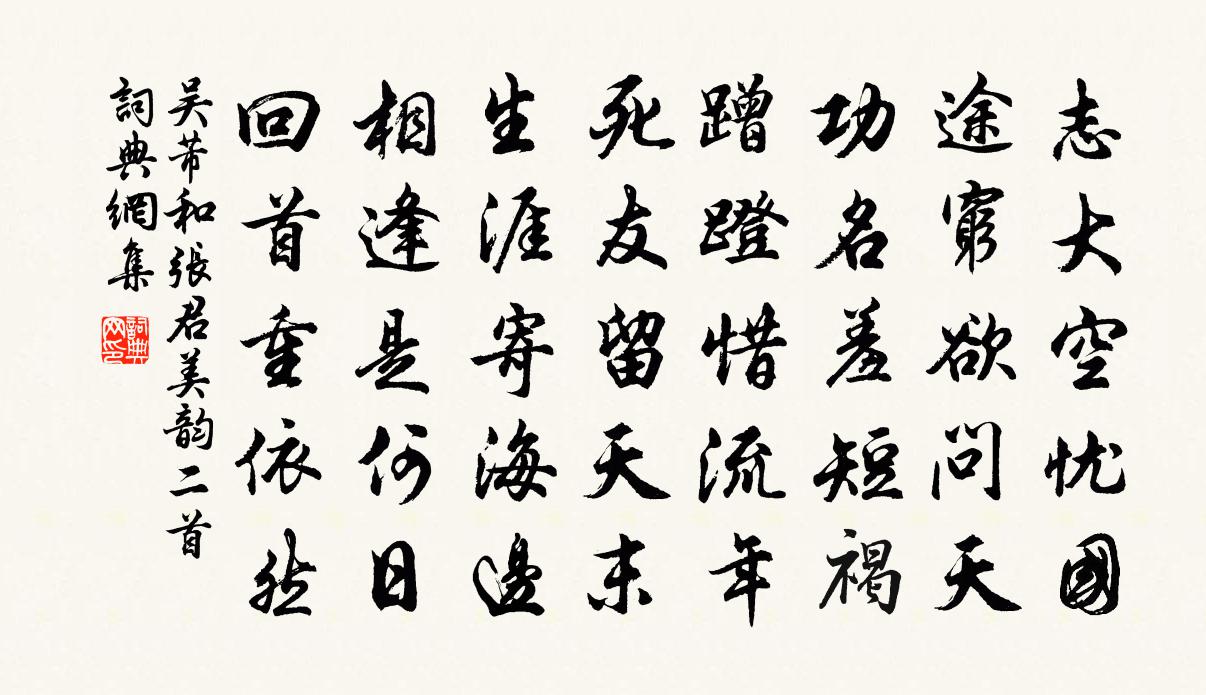 志大空忧國
途窮欲問天
功名羞短褐
蹭蹬惜流年
死友留天末
生涯寄海邊
相逢是何日
回首重依然
吴芾和張君美韵二首
詞典網集
詞典网印